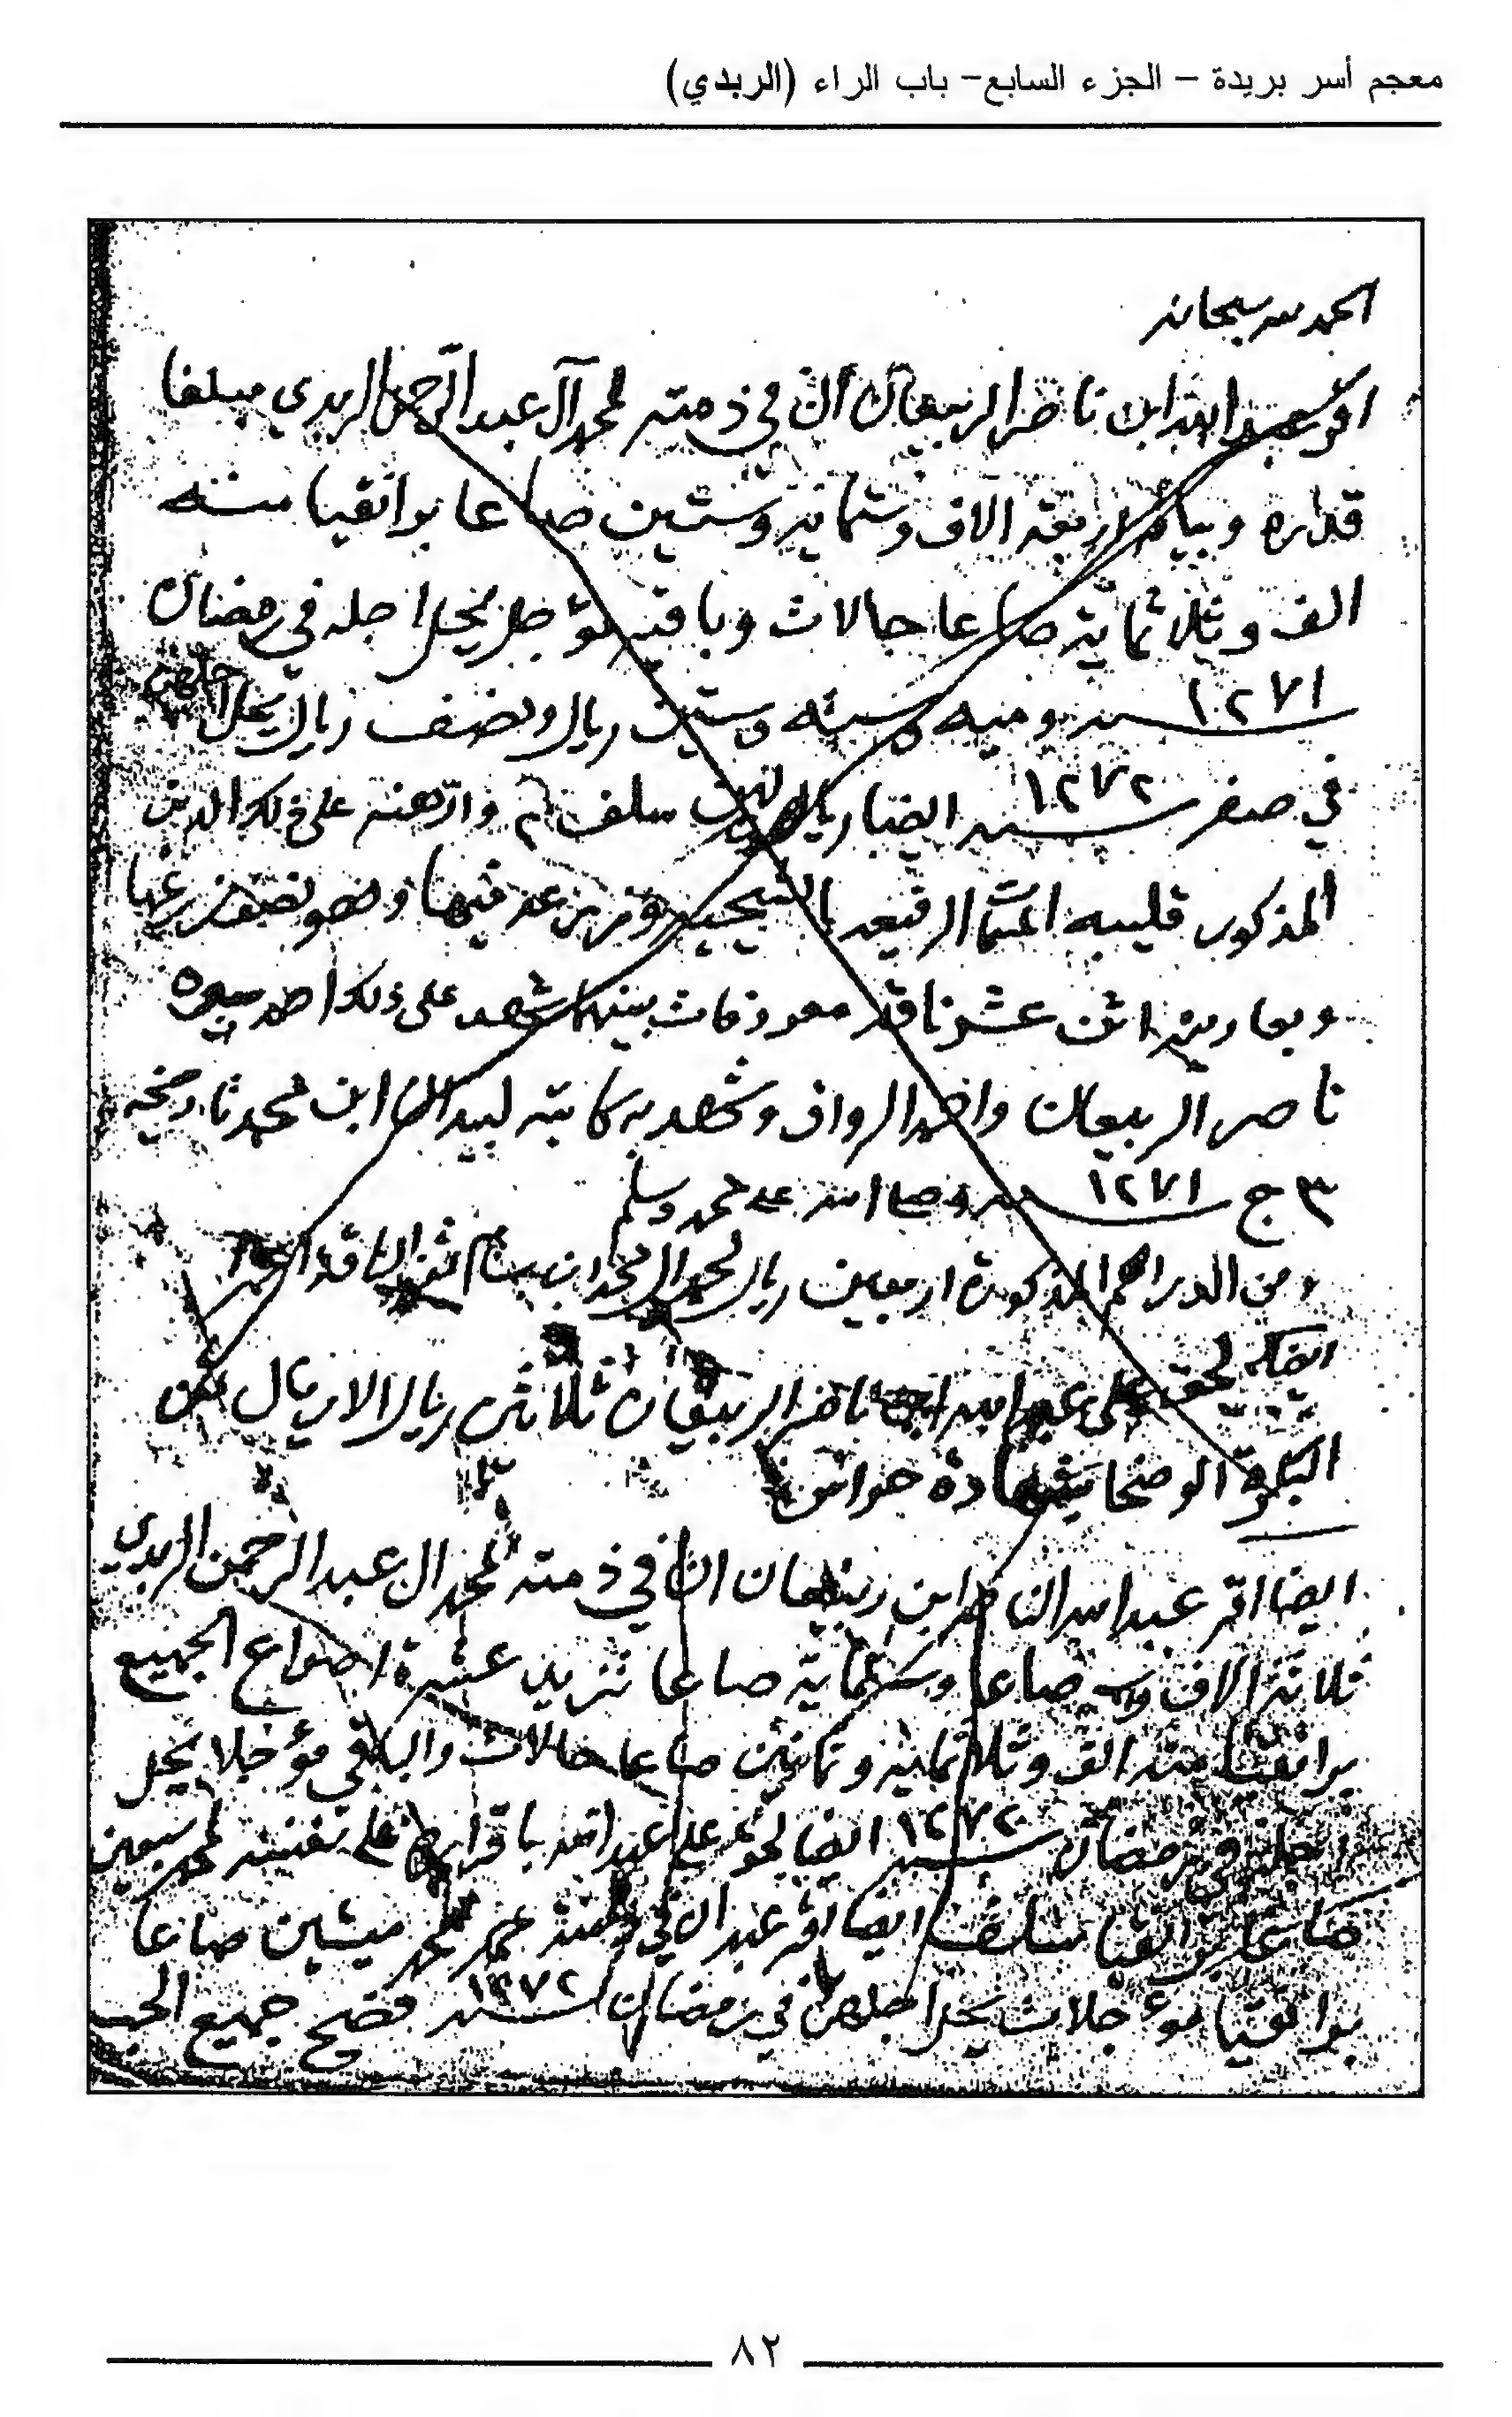 معجم أسر بريدة – الجزء السابع– باب الراء (الربدي)
الحمد لله سبحانه
اقر عبد الله ابن ناصر الربيعان ان في ذمته لمحمد آل عبد الرحمن الربدي مبلغا
قدره وبيانه اربعة الاف وثمانية وستين صاعا بوا نقيا منه
الف وثلاثماية صاعا حالات وباقيه مؤجل يحل اجله في رمضان
١٢٧١ سنة وميه وستين ريال ونصف ريال يحل اجلهن
في صفر ١٢٧٢ سنة ايضا ريالين سلف وارهنه على ذلك الدين
المذكور قليبه وزرعه فيها وهو نصف زرعها
وبعارينه اثن عشر ناقة معروفات بينهما شهد على ذلك اخيه
ناصر الربيعان واحمد الرواف وشهد به كاتبه ابن محمد تاريخه
٣ ج ١٢٧١ سنة وصلى الله على محمد وسلم
ومن الدراهم المذكورة اربعين ريال لحمد ال محمد
ايضا لحق على عبد الله ابن ناصر الربيعان ثلاثين ريال الا ريال ثمن
البكرة الوضحا بشهادة
ايضا اقر عبد الله الناصر ابن ربيعان ان في ذمته لمحمد ال عبد الرحمن الربدي
ثلاثة الاف صاعا وستماية صاعا تزيد عشرة اصواع الجميع
بوا نقيا منه الف وثلاثماية وثمانين صاعا حالات والباقي مؤجلا يحل
اجله في رمضان ١٢٧٢ سنة ايضا لحق على عبد الله باقراره على نفسه لمحمد سبعين
صاعا بوا نقيا سلف ايضا اقر عبد الله في ذمته لمحمد ميتين صاعا
بوا نقيا مؤجلات يحل اجلهن في رمضان ١٢٧٢ سنة فصح جميع الحب
٨٢